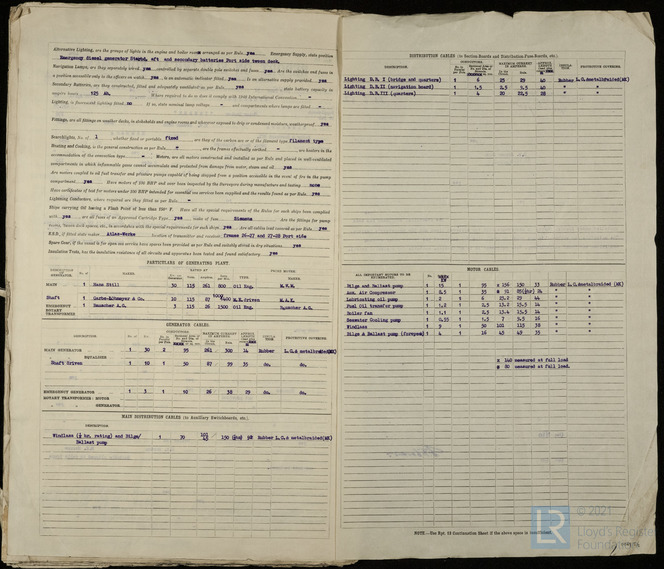 Alternative Lighting, are the groups of lights in the engine and boiler rooms arranged as per Rule yes Emergency Supply, state position
Emergency diesel generator Stopdd, aft and secondary batteries Port side tween deck.
Navigation Lamps, are they separately wired yes controlled by separate double pole switches and fuses yes Are the switches and fuses in
a position accessible only to the officers on watch yes is an automatic indicator fitted yes Is an alternative supply provided yes
Secondary Batteries, are they constructed, fitted and adequately ventilated as per Rule yes state battery capacity in
ampere hours 125 Ah
Lighting, is fluorescent lighting fitted no If so, state nominal lamp voltage - and compartments where lamps are fitted -
Fittings, are all fittings on weather decks, in stokeholds and engine rooms and wherever exposed to drip or condensed moisture, weatherproof yes
Searchlights, No. of 1 whether fixed or portable fixed are they of the carbon arc or of the filament type filament type
Heating and Cooking, is the general construction as per Rule + are the frames effectually earthed - are heaters in the
accommodation of the convection type - Motors, are all motors constructed and installed as per Rule and placed in well-ventilated
compartments in which inflammable gases cannot accumulate and protected from damage from water, steam and oil yes
Are motors coupled to oil fuel transfer and pressure pumps capable of being stopped from a position accessible in the event of fire in the pump
compartment yes Have motors of 100 BHP and over been inspected by the Surveyors during manufacture and testing none
Have certificates of test for motors under 100 BHP intended for essential sea services been supplied and the results found as per Rule yes
Lightning Conductors, where required are they fitted as per Rule -
Ships carrying Oil having a Flash Point of less than 150° F. Have all the special requirements of the Rules for such ships been complied
with yes are all fuses of an Approved Cartridge Type yes make of fuse Siemens Are the fittings for pump
E.S.D., if fitted state maker Atlas-Werke location of transmitter and receiver frames 26-27 and 27-28 Port side
Spare Gear, if the vessel is for open sea service have spares been provided as per Rule and suitably stored in dry situations yes
Insulation Tests, has the insulation resistance of all circuits and apparatus been tested and found satisfactory yes
PARTICULARS OF GENERATING PLANT.
DESCRIPTION OF GENERATOR. No. of MAKER. RATED AT PRIME MOVER.
TYPE. MAKER.
MAIN 1 Hans Still 30 115 261 800 Oil Eng. M.W.M
Shaft 1 10 115 87 M.E.driven M.A.K.
EMERGENCY 1 3 115 26 1500 Oil Eng.
ROTARY TRANSFORMER
GENERATOR CABLES.
DESCRIPTION. CONDUCTORS. MAXIMUM CURRENT IN AMPERES. PROTECTIVE COVERING.
MAIN GENERATOR 1 30 2 95 261 300 14 Rubber L.C.& metalbraided(MK)
EQUALISER
Shaft driven 1 10 1 50 87 99 35 do. do.
EMERGENCY GENERATOR 1 3 1 10 26 38 29 do. do.
ROTARY TRANSFORMER: MOTOR
GENERATOR
MAIN DISTRIBUTION CABLES (to Auxiliary Switchboards, etc.).
DESCRIPTION
Windlass (½ hr. rating) and Bilge/ 1 70 150 Rubber L.C.& metalbraided(MK)
Ballast pump
DISTRIBUTION CABLES (to Section-Boards and Distribution-Fuse-Boards, etc.).
DESCRIPTION. CONDUCTORS. MAXIMUM CURRENT IN AMPERES. PROTECTIVE COVERING.
Lighting D.B. I (bridge and quarters) 1 6 25 29 40 Rubber L.C.& metalbraided(MK)
Lighting D.B.II (navigation board) 1 1.5 2.5 9.5 40 " "
Lighting D.B.III (quarters) 1 4 20 22.5 28 " "
MOTOR CABLES.
ALL IMPORTANT MOTORS TO BE ENUMERATED. No.
Bilge and Ballast pump 1 15 1 95 x 156 150 33 Rubber L.C.&metalbraided(MK)
Aux. Air Compressor
Lubricating oil pump 1 2 1 6 23.2 29 44 " "
Fuel Oil transfer pump 1 1.2 1 2.5 13.2 15.5 14 " "
Boiler fan 1 1.1 1 2.5 13.4 15.5 14 " "
Seawater Cooling pump 1 0.55 1 1.5 7 9.5 16 " "
Windlass 1 9 1 50 101 115 38 " "
Bilge & Ballast pump (forepeak) 1 4 1 16 43 49 35 " "
x 140 measured at full load
@ 80 measured at full load.
NOTE.—Use Rpt. 13 Continuation Sheet if the above space is insufficient.
LR
© 2021
Lloyd's Register
Foundation